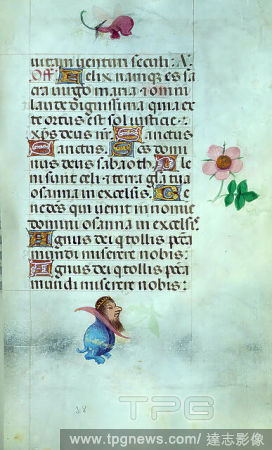 uitam uenturi seculi: A.
Off. Felix namque es sa
cra uirgo maria ⁊ omni
laude dignissima quia ex
te ortus est sol iusticie.
xp̄s deus nr̄. Sanctus
Sanctus. Sc̄s domi
nus deus sabaoth Ple
ni sunt celi ⁊ terra gl̄a tua
osanna in excelsis. Be
nedc̄us qui uenit in nomīe
domini osanna in excelsis.
Agnus dei q̄ tollis pc̄ca
mundi miserere nobis:
Agnus dei q̄ tollis pc̄ca
mundi miserere nobis:
TPG
www.tpgnews.com/達志影像